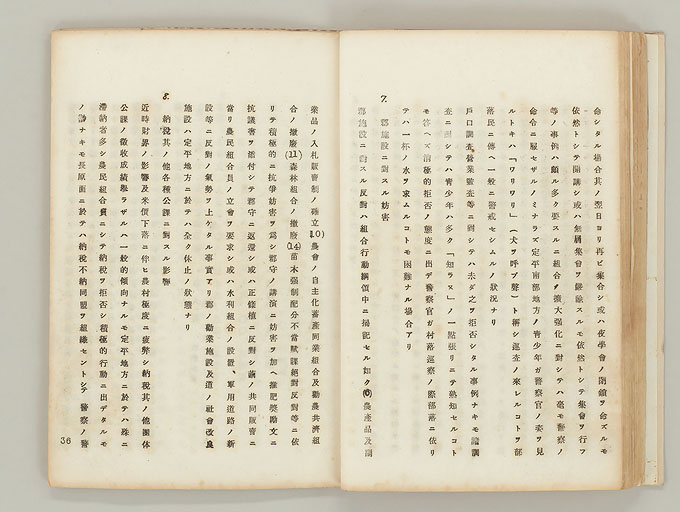 命シタル場合其ノ翌日ヨリ再ビ集合シ或ハ夜學會ノ閉鎖ヲ命ズルモ
依然トシテ開講シ或ハ無屆集會ヲ嚴融スルモ依然トシテ集會ヲ行フ
等ノ事例ハ頗ル多ク要スルニ組合ノ擴大强化ニ對シテハ毫モ警察ノ
命令ニ服セザルノミナラズ定平南部地方ノ青少年ガ警察官ノ姿ヲ見
ルトキハ「ワリワリ」(犬ヲ呼ブ聲)ト稱シ巡査ノ來レルコトヲ部
落民ニ傳ヘ一般ニ警戒セシムルノ狀況ナリ
戶口調査營業臨檢等ニ對シテハ未ダ之ヲ拒否シタル事例ナキモ
査ニ對シテハ青少年ハ多ク「知ラヌ」ノ一點張リニテ熟知セルコト
モ答ヘズ消極的拒否ノ態度ニ出デ警察官ガ村落巡察ノ際部落ニ依リ
テハ一杯ノ水ヲ求ムルコトモ困難ナル場合アリ
7. 郡施設ニ對スル妨害
郡施設ニ對スル反對ハ組合行動綱領中ニ揭記セル如ク(6)農產品及副
業品ノ入札販賣制ノ確立(10)農會ノ自主化畜產同業組合及勸農共濟組
合ノ撤廢(11)森林組合ノ撤廢(14)苗木强制配分不當賦課絕對反對等ニ依
リテ積極的ニ抗爭妨害ヲ爲シ郡守ノ講演ニ妨害ヲ加ヘ推肥獎勵文ニ
抗議書ヲ添付シテ郡守ニ返還シ或ハ正條植ニ反對シ繭ノ共同販賣ニ
當リ農民組合員ノ立會ヲ要求シ或ハ水利組合ノ設置、軍用道路ノ新
設等ニ反對ノ氣勢ヲ上ケタル事實アリ郡ノ勸業施設及道ノ社會改良
施設ハ定平地方ニ於テハ全ク休止ノ狀態ナリ
8. 納稅其ノ他各種公課ニ對スル影響
近時財界ノ影響及米價下落ニ伴ヒ農村極度ニ疲弊シ納稅其ノ他團体
公課ノ徵收成績擧ラザルハ一般的傾向ナルモ定平地方ニ於テハ殊ニ
滯納者多シ農民組合員ニシテ納稅ヲ拒否シ積極的行動ニ出デタルモ
ノ勘ナキモ長原面ニ於テハ納稅不納同盟ヲ組織セントシテ警察ノ警
36